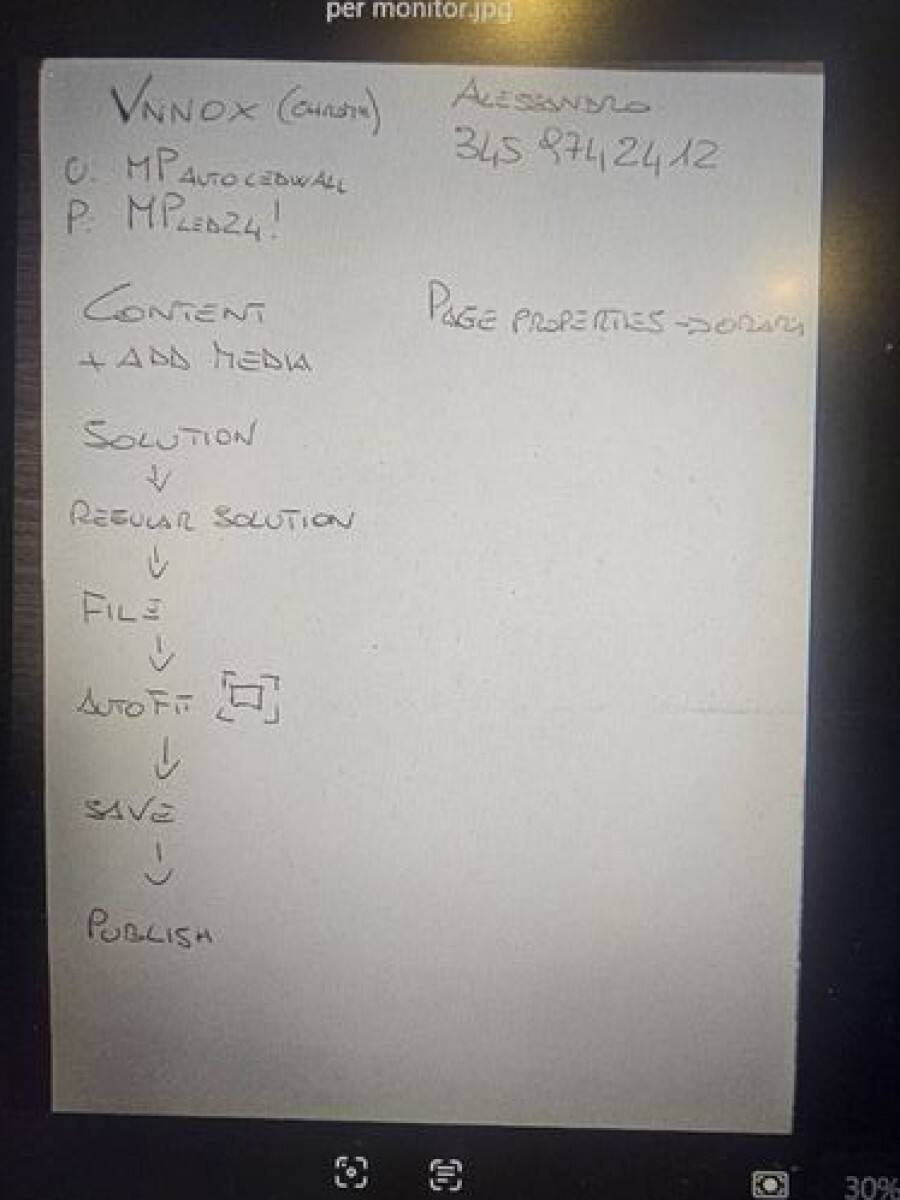 per monitor.jpg
VNNOX
ALESSANDRO
345 9742412
U. MPAUTOLEDWALL
P. MPLED24!
CONTENT
+ ADD MEDIA
PAGE PROPERTIES → ORARI
SOLUTION
↓
REGULAR SOLUTION
↓
FILE
↓
AUTOFIT
↓
SAVE
↓
PUBLISH
30%